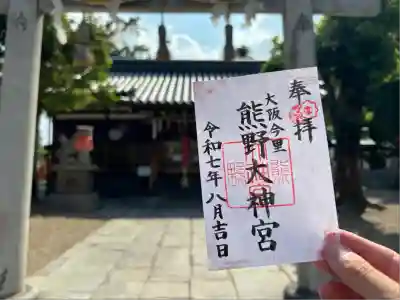 奉拝
大阪今里
熊野大神宮
令和七年八月吉日